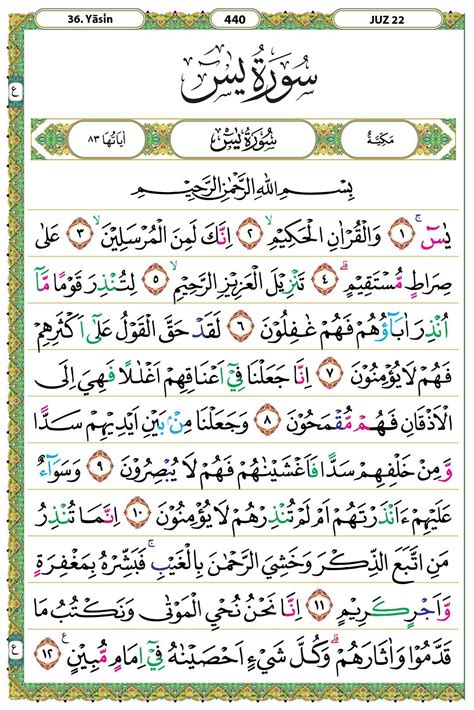 36. Yāsin 440 JUZ 22
سُورَةُ يٰسٓ
مَكِّيَّةٌ سُورَةُ يٰسٓ اٰيَاتُهَا ٨٣
بِسْمِ اللّٰهِ الرَّحْمٰنِ الرَّحِيْمِ
يٰسٓ ۚ ١ وَالْقُرْاٰنِ الْحَكِيْمِۙ ٢ اِنَّكَ لَمِنَ الْمُرْسَلِيْنَۙ ٣ عَلٰى
صِرَاطٍ مُّسْتَقِيْمٍۗ ٤ تَنْزِيْلَ الْعَزِيْزِ الرَّحِيْمِۙ ٥ لِتُنْذِرَ قَوْمًا مَّآ
اُنْذِرَ اٰبَاۤؤُهُمْ فَهُمْ غٰفِلُوْنَ ٦ لَقَدْ حَقَّ الْقَوْلُ عَلٰٓى اَكْثَرِهِمْ
فَهُمْ لَا يُؤْمِنُوْنَ ٧ اِنَّا جَعَلْنَا فِيْٓ اَعْنَاقِهِمْ اَغْلٰلًا فَهِيَ اِلَى
الْاَذْقَانِ فَهُمْ مُّقْمَحُوْنَ ٨ وَجَعَلْنَا مِنْۢ بَيْنِ اَيْدِيْهِمْ سَدًّا
وَّمِنْ خَلْفِهِمْ سَدًّا فَاَغْشَيْنٰهُمْ فَهُمْ لَا يُبْصِرُوْنَ ٩ وَسَوَاۤءٌ
عَلَيْهِمْ ءَاَنْذَرْتَهُمْ اَمْ لَمْ تُنْذِرْهُمْ لَا يُؤْمِنُوْنَ ١٠ اِنَّمَا تُنْذِرُ
مَنِ اتَّبَعَ الذِّكْرَ وَخَشِيَ الرَّحْمٰنَ بِالْغَيْبِۚ فَبَشِّرْهُ بِمَغْفِرَةٍ
وَّاَجْرٍ كَرِيْمٍ ١١ اِنَّا نَحْنُ نُحْيِ الْمَوْتٰى وَنَكْتُبُ مَا
قَدَّمُوْا وَاٰثَارَهُمْۗ وَكُلَّ شَيْءٍ اَحْصَيْنٰهُ فِيْٓ اِمَامٍ مُّبِيْنٍ ࣖ ١٢
ع
ع